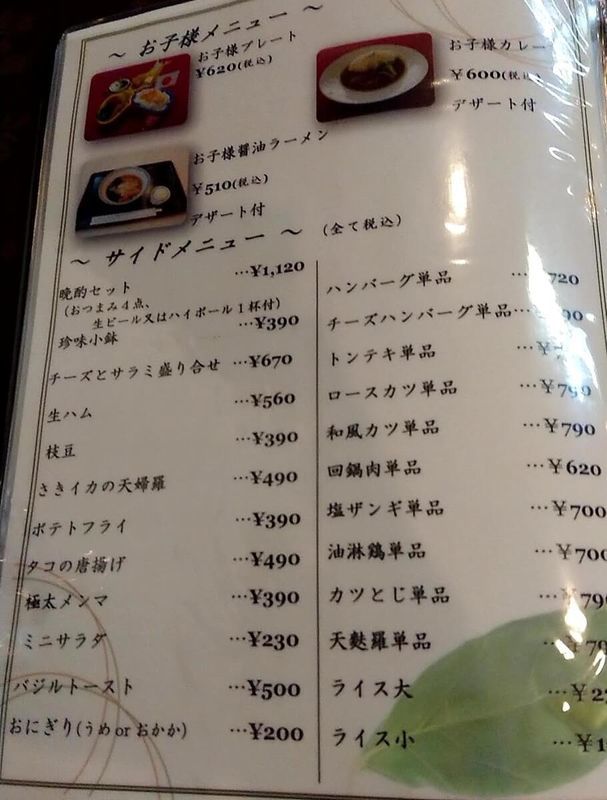 ～ お子様メニュー ～
お子様プレート
¥620(税込)
お子様カレー
¥600(税込)
デザート付
お子様醤油ラーメン
¥510(税込)
デザート付
～ サイドメニュー ～ (全て税込)
晩酌セット …¥1,120
(おつまみ４点、
生ビール又はハイボール１杯付)
珍味小鉢 …¥390
チーズとサラミ盛り合せ …¥670
生ハム …¥560
枝豆 …¥390
さきイカの天婦羅 …¥490
ポテトフライ …¥390
タコの唐揚げ …¥490
極太メンマ …¥390
ミニサラダ …¥230
バジルトースト …¥500
おにぎり(うめ or おかか) …¥200
ハンバーグ単品 …720
チーズハンバーグ単品…
トンテキ単品 …¥
ロースカツ単品 …¥790
和風カツ単品 …¥790
回鍋肉単品 …¥620
塩ザンギ単品 …¥700
油淋鶏単品 …¥700
カツとじ単品 …¥790
天麩羅単品 …¥
ライス大 …¥
ライス小 …¥